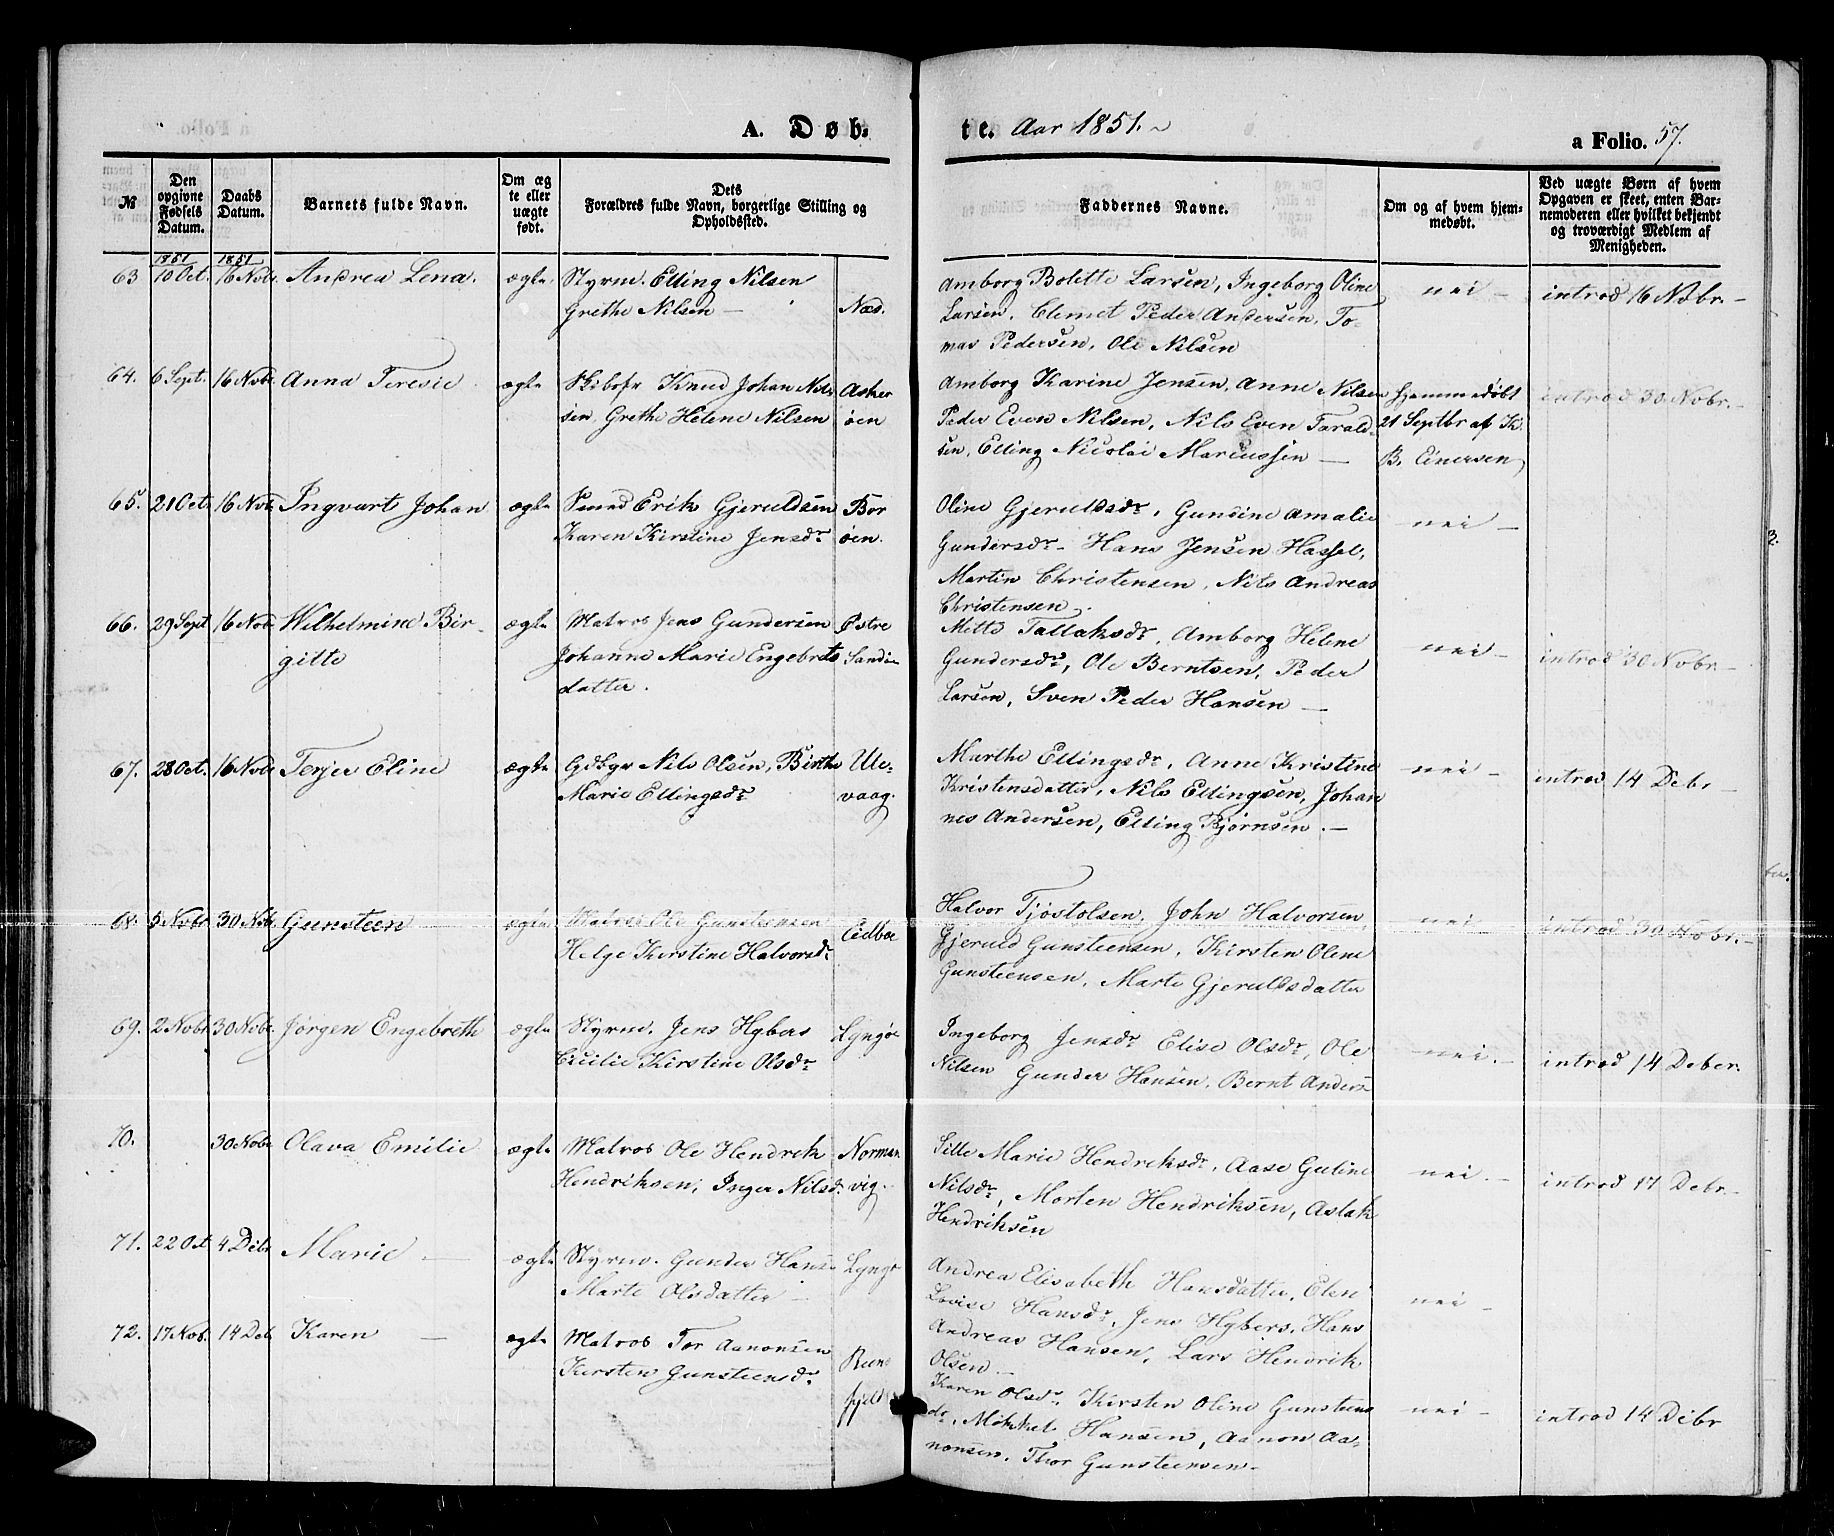 A. Døb-
te. Aar 1851.
a Folio. 57.
№
Den opgivne Fødsels Datum.
Daabs Datum.
Barnets fulde Navn.
Om ægte eller uægte født.
Dets Forældres fulde Navn, borgerlige Stilling og Opholdssted.
Faddernes Navne.
Om og af hvem hjemmedøbt.
Ved uægte Børn af hvem Opgaven er skeet, enten Barnemoderen eller hvilket bekjendt og troværdigt Medlem af Menigheden.
1851 1851
63 10 Oct. 16 Nobr. Andrea Lena. ægte Styrm. Elling Nilsen
Grethe Nilsen — Næs.
Amborg Bolette Larsen, Ingeborg Oline
Larsen, Clemet Peder Andersen, To-
mas Pedersen, Ole Nilsen
nei — introd 16 Nobr. —
64. 6 Sept. 16 Nobr. Anna Teresie ægte Skibsfr Knud Johan Nil-
sen, Grethe Helene Nilsen
Asker
øen
Amborg Karine Jensen, Anne Nilsen
Peder Even Nilsen, Nils Even Tarald-
sen, Elling Nicolai Marcussen —
hjemmedøbt
21 Septbr af K.
B. Einersen
introd 30 Nobr. —
65. 21 Oct. 16 Nobr. Ingvart Johan ægte Smed Erik Gjeruldsen
Karen Kirstine Jensdr
Bor
øen.
Oline Gjeruldsdr, Gundine Amalie
Gundersdr — Hans Jensen Hassel,
Martin Christensen, Nils Andreas
Christensen.
nei —
66. 29 Sept 16 Nobr Wilhelmine Bir-
gitte
ægte Matros Jens Gundersen
Johanne Marie Engebrets
datter.
Østre
Sandø
Mette Tallaksdr, Amborg Helene
Gundersdr, Ole Berntsen, Peder
Larsen, Sven Peder Hansen —
nei — introd 30 Nobr —
67. 28 Oct. 16 Nobr Terjer Eline ægte Gdbgr Nils Olsen, Birthe
Marie Ellingsdr
Ule-
vaag.
Marthe Ellingsdr, Anne Kristine
Kristensdatter, Nils Ellingsen, Johan
nes Andersen, Elling Bjørnsen. —
nei — introd 14 Debr —
68. 5 Nobr 30 Nobr. Gunsteen ægte Matros Ole Gunsteensen
Helge Kirstine Halvorsdr
Eidboe
Halvor Tjøstolsen, John Halvorsen,
Gjeruld Gunsteensen, Kirsten Olene
Gunsteensen, Marte Gjeruldsdatter
nei — introd 30 Nobr. —
69. 2 Nobr 30 Nobr. Jørgen Engebreth ægte Styrm. Jens Hybers
Cicilie Kirstine Olsdr
Lyngøe
Ingeborg Jensdr Elise Olsdr, Ole
Nilsen Gunder Hansen, Bernt Anders
nei. — introd 14 Deber.
70. 30 Nobr Olava Emilie ægte Matros Ole Hendrik
Hendriksen, Inger Nilsd.
Norman
vig.
Sille Marie Hendriksdr, Aase Guline
Nilsdr, Morten Hendriksen, Aslak
Hendriksen
nei. — introd 17 Debr —
71. 22 Oct 4 Debr Marie — ægte Styrm. Gunder Hans
Marte Olsdatter —
Lyngø
Andrea Elisabeth Hansdatter, Elen
Lovise Hansdr, Jens Hybers, Hans
Andreas Hansen, Lars Hendrik
Olsen —
nei —
72. 17 Nob. 14 Deb. Karen — ægte Matros Tor Aanonsen
Kirsten Gunsteensdr
Reene
fjeld
Karen Olsdr, Kirsten Oline Gunsteens
dr, Mikkel Hansen, Aanon Aa-
nonsen, Thor Gunsteensen —
nei — introd 14 Debr